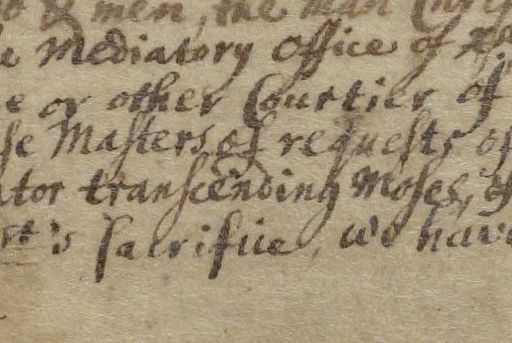 & men, the man Chris
Mediatory Office of
or other Courtier of
se Masters of requests of
ator transcending Moses,
st's sacrifice, we have